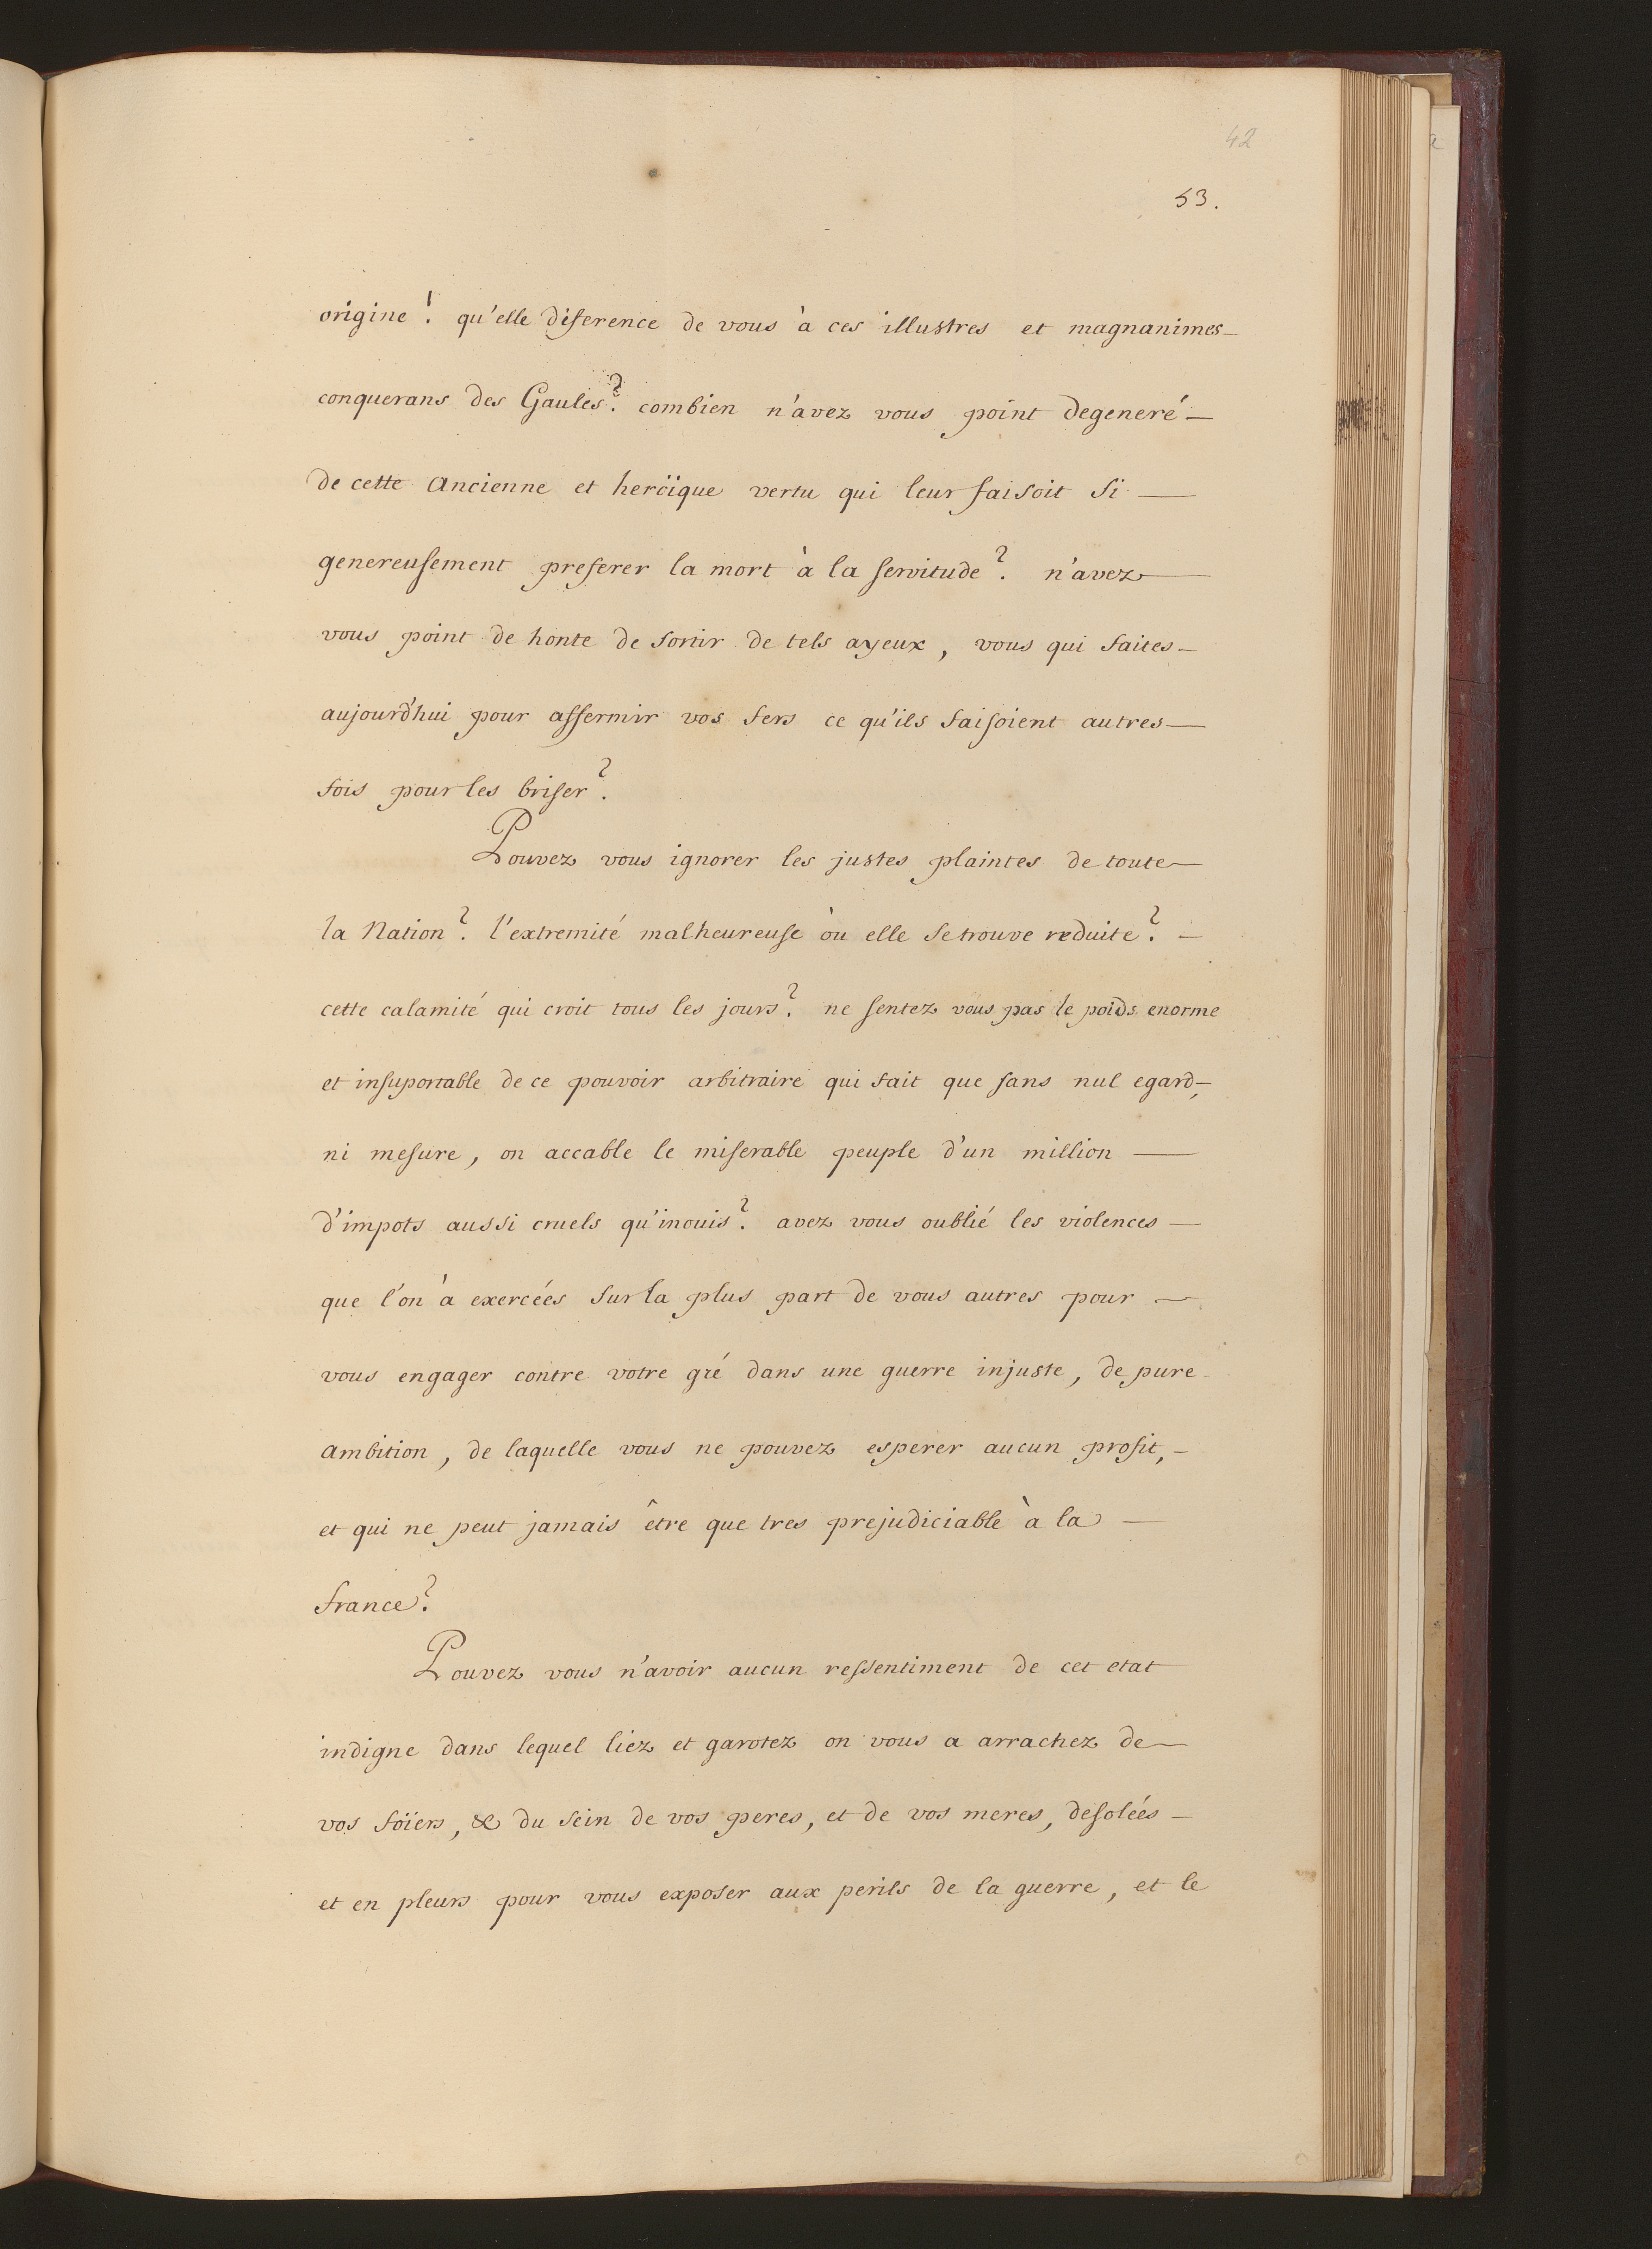 42
53.
origine! qu'elle diference de vous à ces illustres et magnanimes
conquerans des Gaules? combien n'avez vous point degeneré
de cette Ancienne et heroïque vertu qui leur faisoit si
genereusement preferer la mort à la servitude? n'avez
vous point de honte de sortir de tels ayeux, vous qui faites
aujourd'hui pour affermir vos fers ce qu'ils faisoient autres
fois pour les briser?
Pouvez vous ignorer les justes plaintes de toute
la Nation? l'extremité malheureuse où elle se trouve reduite?
cette calamité qui croit tous les jours? ne sentez vous pas le poids enorme
et insuportable de ce pouvoir arbitraire qui fait que sans nul egard,
ni mesure, on accable le miserable peuple d'un million
d'impots aussi cruels qu'inouis? avez vous oublié les violences
que l'on à exercées sur la plus part de vous autres pour
vous engager contre votre gré dans une guerre injuste, de pure
Ambition, de laquelle vous ne pouvez esperer aucun profit,
et qui ne peut jamais être que tres prejudiciable à la
france?
Pouvez vous n'avoir aucun ressentiment de cet etat
indigne dans lequel liez et garotez on vous a arrachez de
vos foïers, & du sein de vos peres, et de vos meres, desolées
et en pleurs pour vous exposer aux perils de la guerre, et le